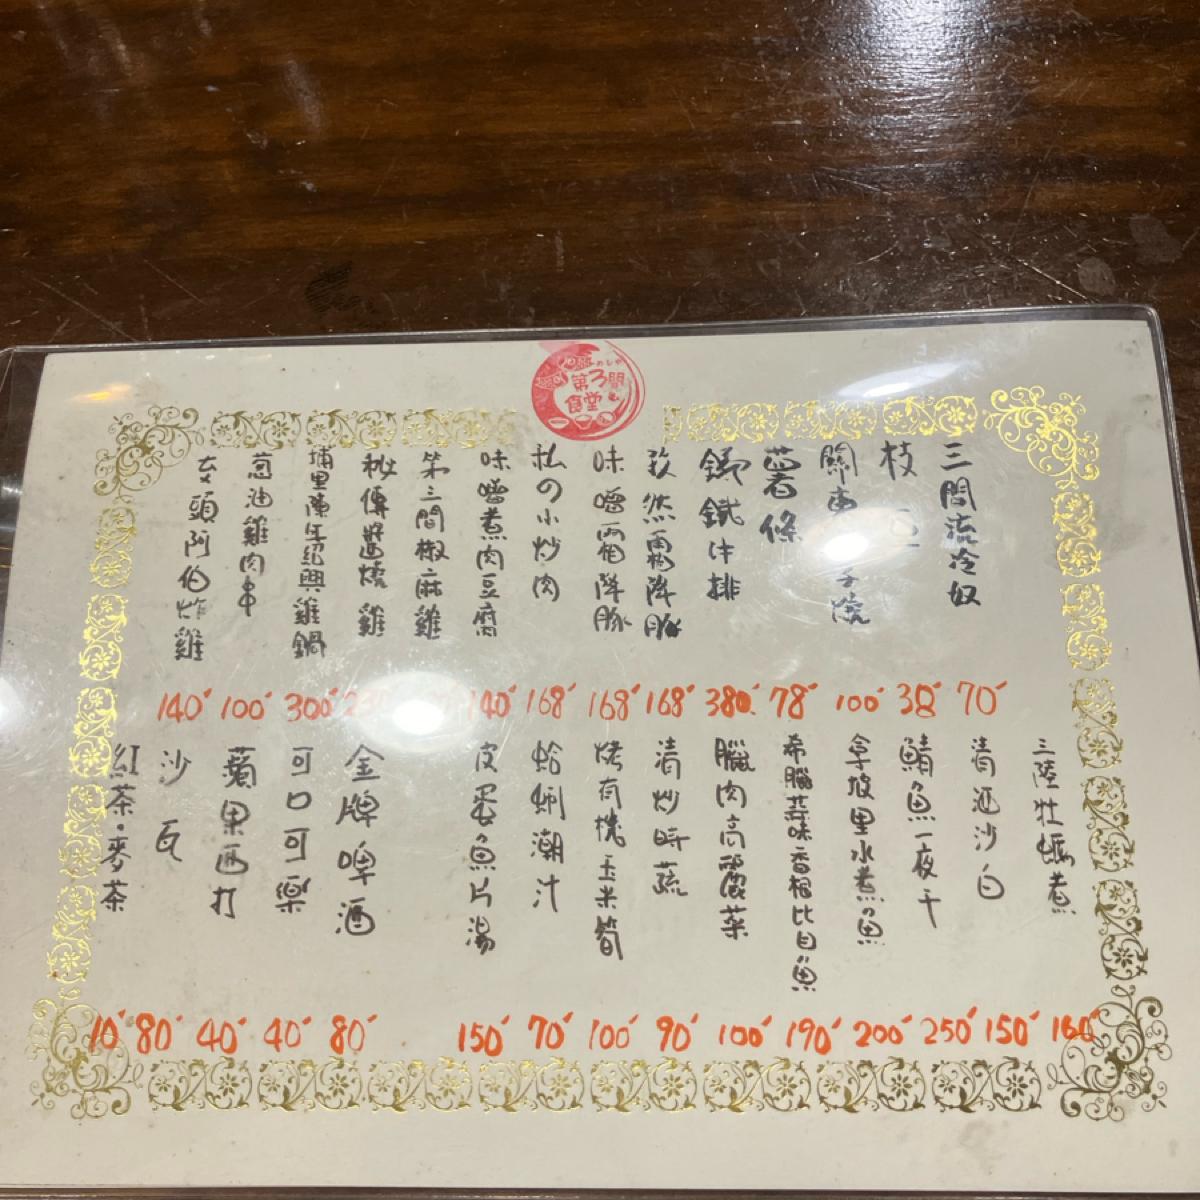 めしや
第3間
食堂
三間流冷奴 70
枝豆 38
燒 100
薯條 78
鐵牛排 380
孜然霜降豚 168
味噌霜降豚 168
私の小炒肉 168
味噌煮肉豆腐 140
第三間椒麻雞
秘傳醬燒雞
埔里陳年紹興雞鍋 300
蔥油雞肉串 100
頭阿伯炸雞 140
三陸牡蠣煮 160
清酒沙白 150
鯖魚一夜干 250
拿坡里水煮魚 200
希臘蒜味香檳比目魚 190
臘肉高麗菜 100
清炒時蔬 90
烤有機玉米筍 100
蛤蜊潮汁 70
皮蛋魚片湯 150
金牌啤酒 80
可口可樂 40
蘋果西打 40
沙瓦 80
紅茶・麥茶 10